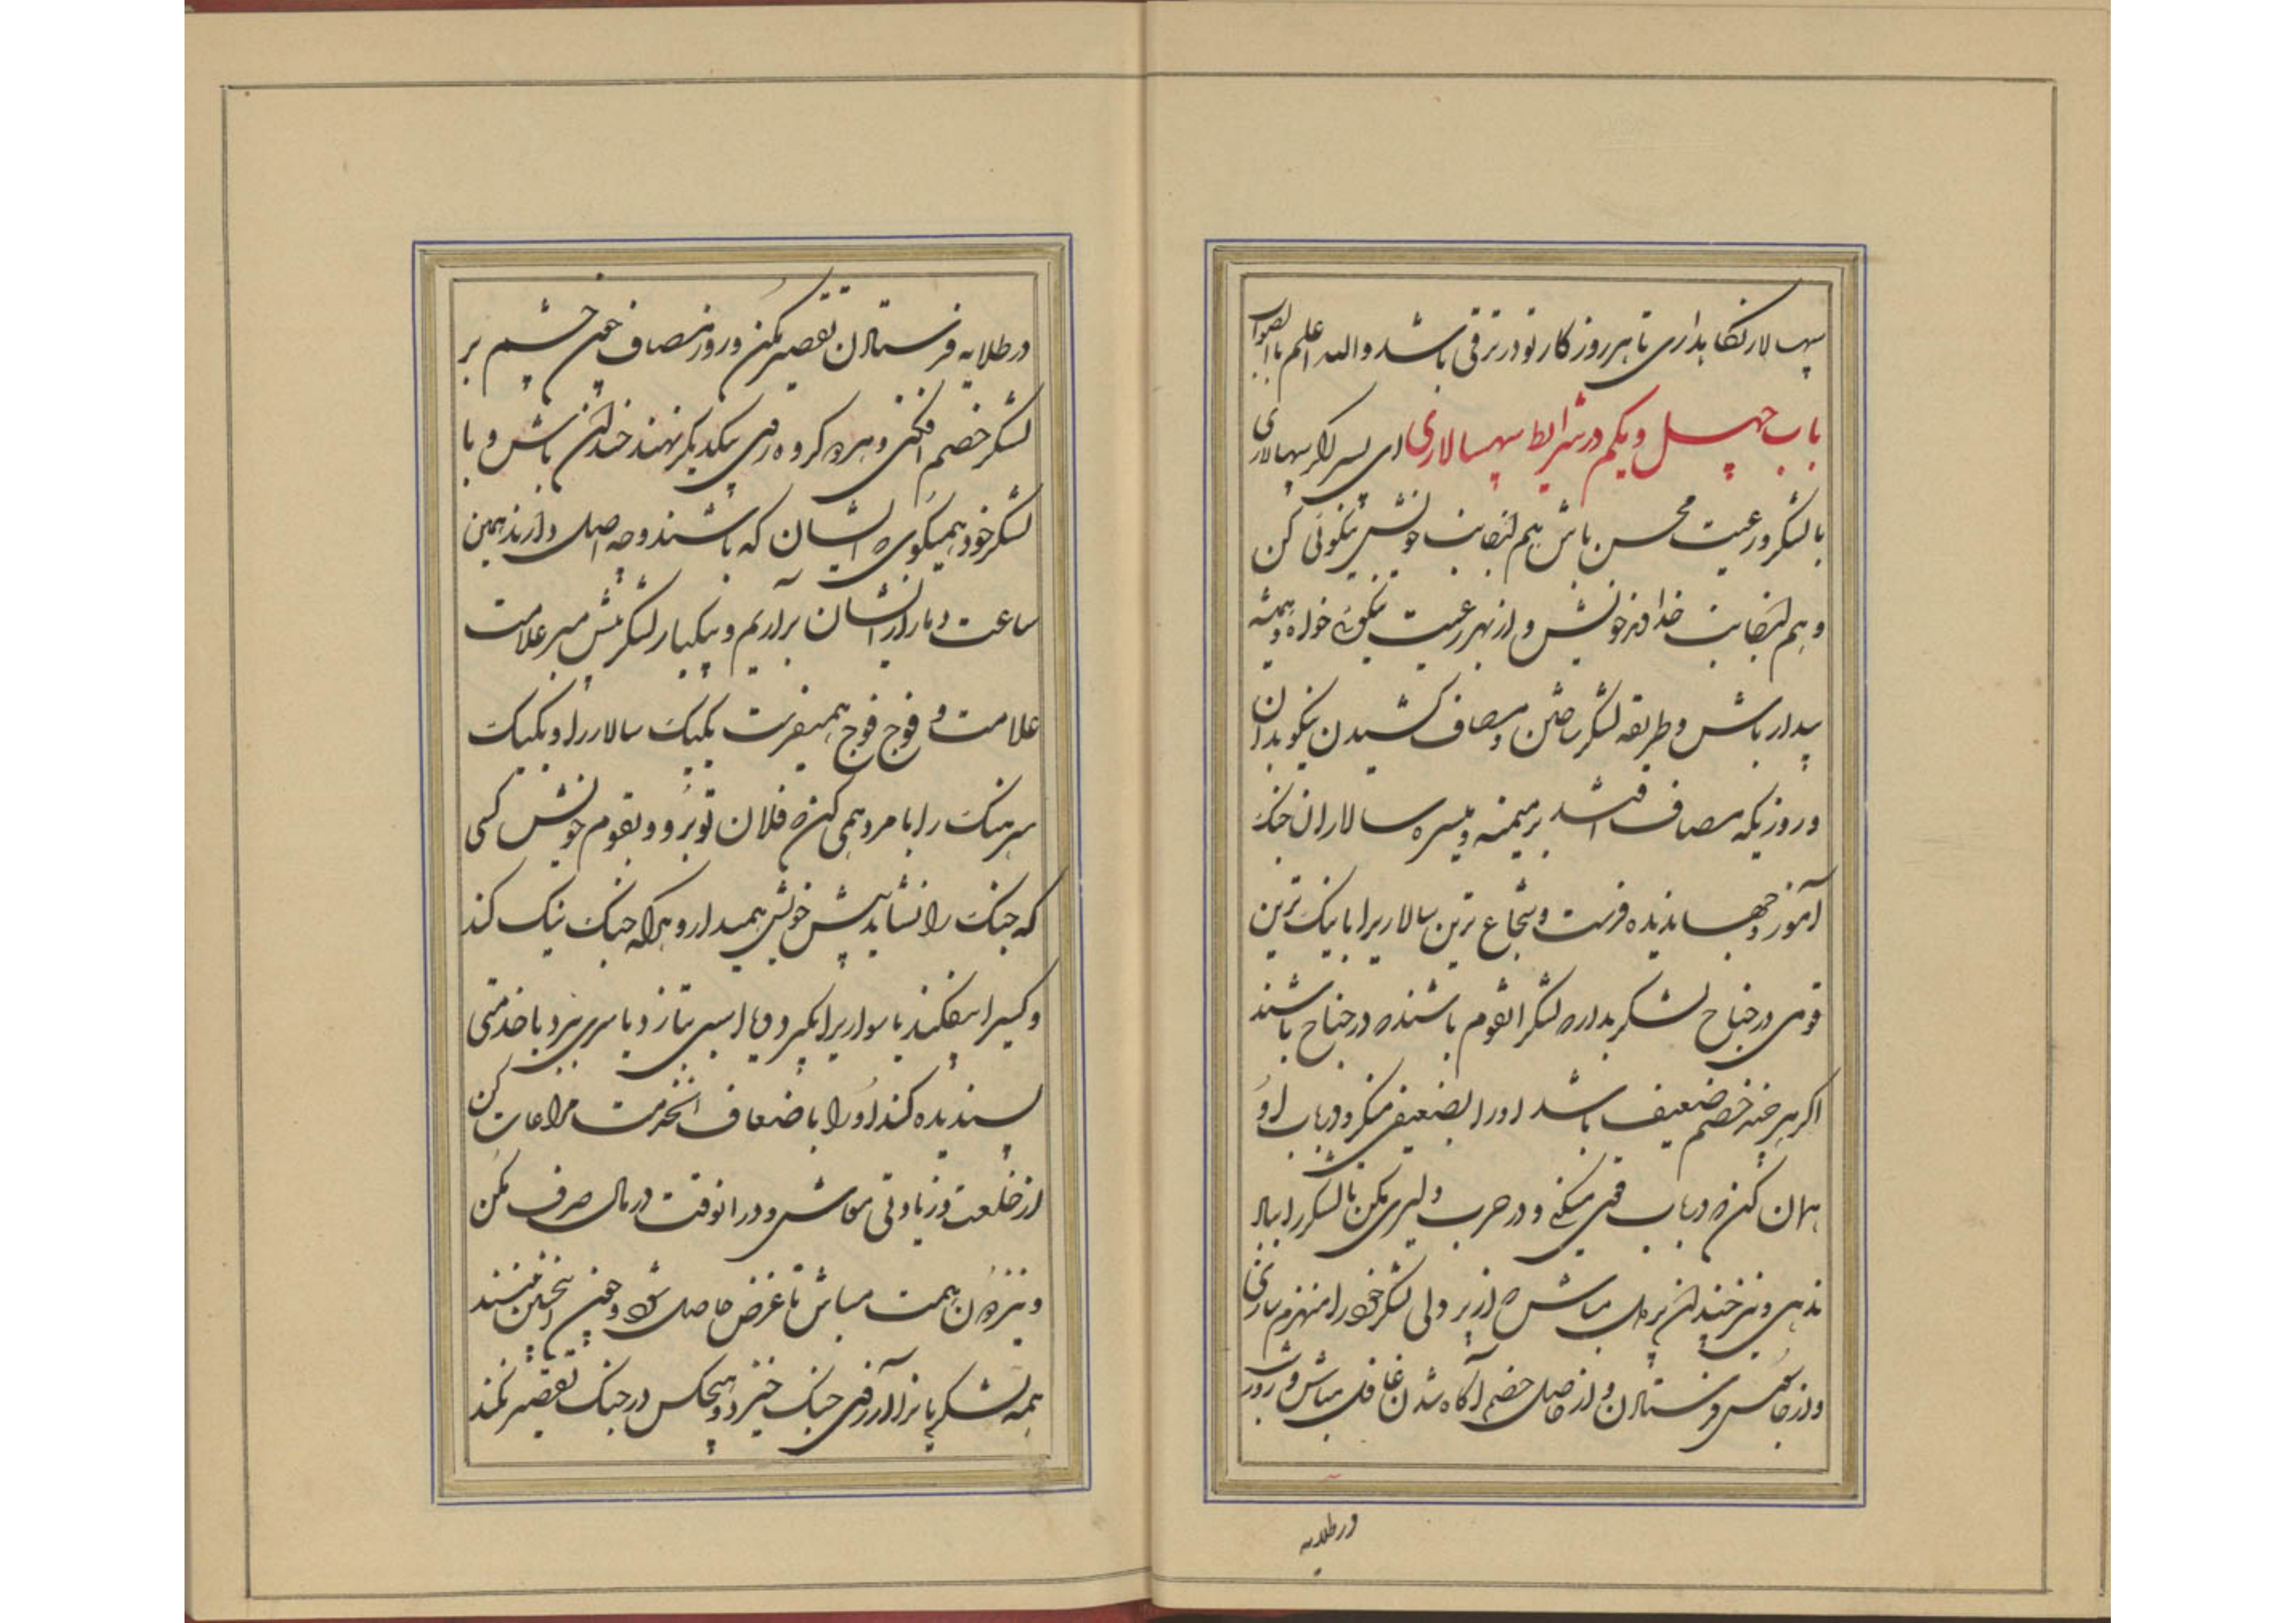 سپهسالار نکاهداری تا هر روز کار تو در ترقی باشد والله اعلم باالصواب
باب چهل و یکم در شرایط سپهسالاری ای پسر اکر سپهسالاری
با لشکر و رعیت محسن باش هم از جانب خویش نیکوئی کن
و هم از جانب خداوند خویش و از بهر رعیت نیکوئی خواه و همیشه
بیدار باش و طریقه لشکر ساختن و مصاف کشیدن نیکو بدان
و روزیکه مصاف افتد بر میمنه و میسره سالاران جنک
آموز و جهاندیده فرست و شجاع ترین سالاریرا با نیک ترین
قومی در جناح لشکر بدار که لشکر انقوم باشند که در جناح باشند
اکر چه خصم ضعیف باشد او را بضعیفی منکر و در باب او
همان کن که در باب قوی میکنی و در حرب دلیری مکن تا لشکر را بباد
ندهی و نیز چندان بددل مباش که از بددلی لشکر خود را منهزم سازی
و از جاسوس فرستادن و از حاصل خصم آکاه شدن غافل مباش و شب و روز
در طلایه
در طلایه فرستادن تقصیر مکن و روز مصاف چون چشم بر
لشکر خصم افکنی و هر دو کروه روی بیکدیکر نهند خندان باش و با
لشکر خود همیکوی که ایشان که باشند و چه اصل دارند همین
ساعت دمار از ایشان برآریم و بیکبار لشکر پیش مبر علامت
علامت و فوج فوج همیفرست یکیک سالار را و یکیک
سرهنک را با مرد همی کن که فلان تو برو و بقوم خویش کسی
که جنک را نشاید پیش خویش همیدار و هر که جنک نیک کند
و کسیرا بیفکند یا سواریرا بکیرد و یا اسبی بتازد یا سری ببرد یا خدمتی
پسندیده کند او را باضعاف انخدمت مراعات کن
از خلعت و زیادتی معاش و در انوقت در مال صرف مکن
و نیز دون همت مباش تا غرض حاصل شود و چون انچنین بینند
همه لشکریانرا آرزوی جنک خیزد و هیچکس در جنک تقصیر نکند